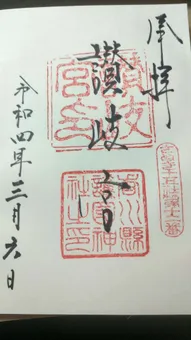 奉拝
讃岐宮
令和四年三月六日
讃岐宮印
香川縣護國神社之印